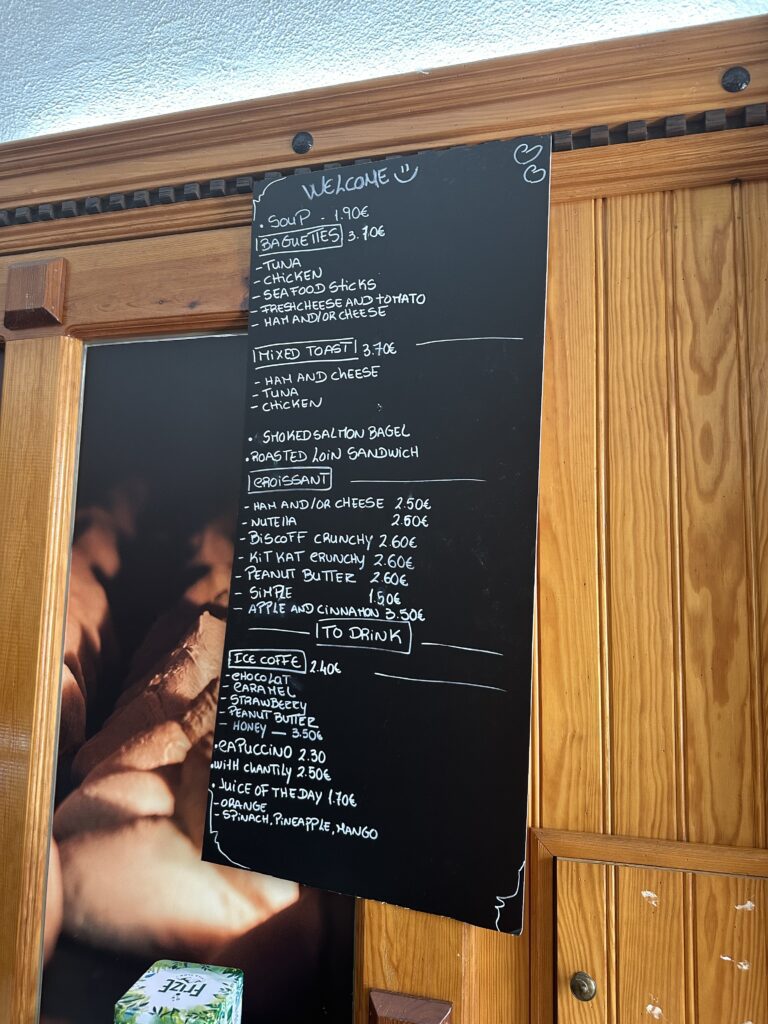 WELCOME
• SOUP - 1.90€
BAGUETTES 3.70€
- TUNA
- CHICKEN
- SEAFOOD STICKS
- FRESHCHEESE AND TOMATO
- HAM AND/OR CHEESE
MIXED TOAST 3.70€
- HAM AND CHEESE
- TUNA
- CHICKEN
• SMOKED SALMON BAGEL
• ROASTED LOIN SANDWICH
CROISSANT
- HAM AND/OR CHEESE 2.50€
- NUTELLA 2.60€
- BISCOFF CRUNCHY 2.60€
- KITKAT CRUNCHY 2.60€
- PEANUT BUTTER 2.60€
- SIMPLE 1.50€
- APPLE AND CINNAMON 3.50€
TO DRINK
ICE COFFE 2.40€
- CHOCOLAT
- CARAMEL
- STRAWBERRY
- PEANUT BUTTER
- HONEY — 3.50€
• CAPUCCINO 2.30
• WITH CHANTILY 2.50€
• JUICE OF THE DAY 1.70€
- ORANGE
- SPINACH, PINEAPPLE, MANGO
FRIZE